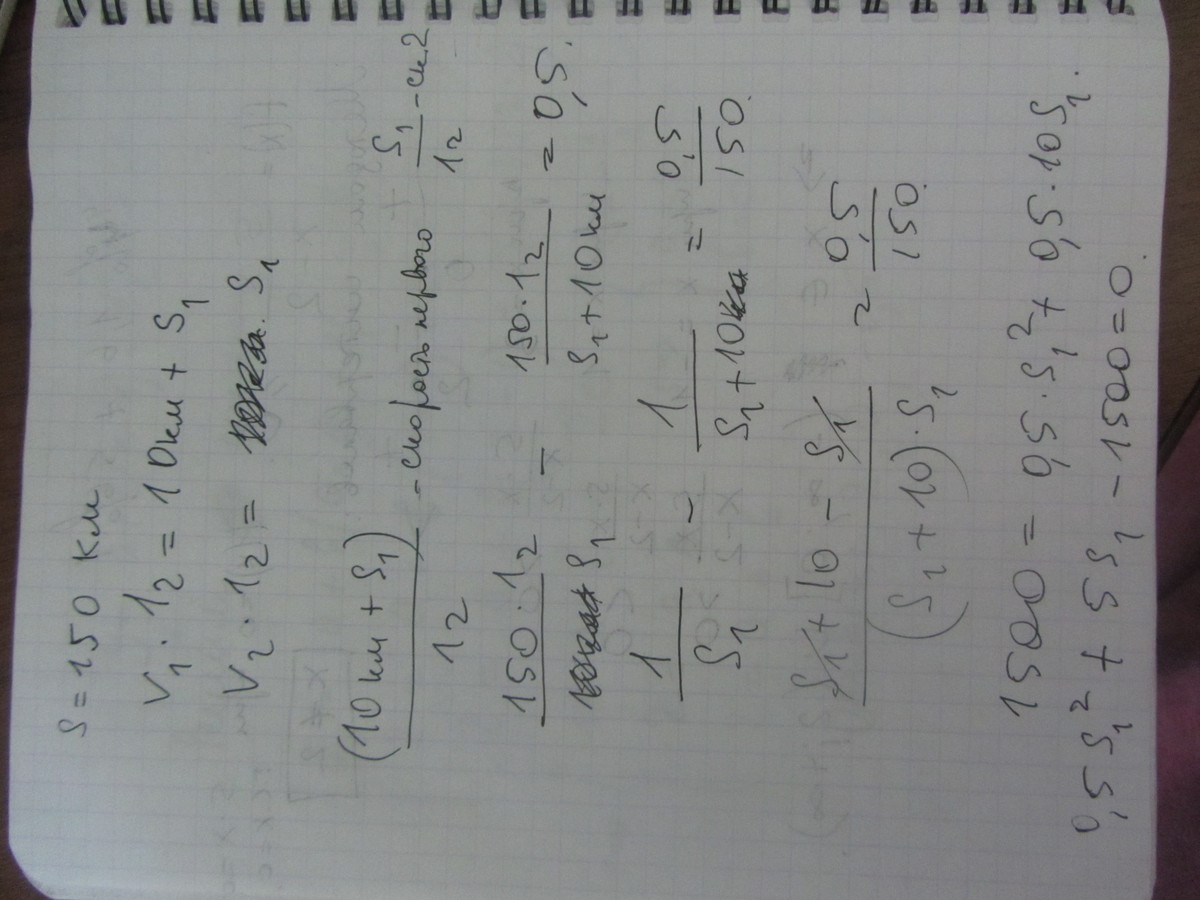 S = 150 км
V₁ · 1₂ = 10км + S₁
V₂ · 1₂ = S₁
(10км + S₁) / 1₂ - скорость первого S₁ / 1₂ - ск. 2
150 · 1₂ / S₁ - 150 · 1₂ / S₁ + 10км = 0,5.
1 / S₁ - 1 / S₁ + 10 = 0,5 / 150.
S₁ + 10 - S₁ / (S₁ + 10) · S₁ = 0,5 / 150.
1500 = 0,5 · S₁² + 0,5 · 10S₁.
0,5S₁² + 5S₁ - 1500 = 0.